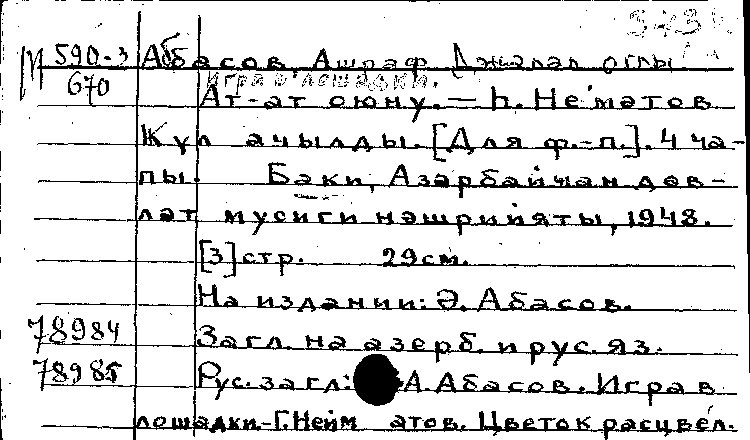 М 590-3
670
Аббасов, Ашраф Джалал оглы
Игра в лошадки.
Ат-ат оюну. — Һ. Не'матов
Күл ачылды. [Для ф.-п.]. 4 ча-
пы. Баки, Азәрбайҹан дөв-
ләт мусиги нәшрийяты, 1948.
[3] стр. 29 см.
На издании: Ә. Абасов.
78984
Загл. на азерб. и рус. яз.
78985
Рус. загл.: А. Абасов. Игра в
лошадки.-Г. Нейм атов. Цветок расцвел.